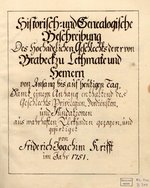 Historisch- und Genealogische
Beschreibung
Des Hochadelichen Geschlechts derer von
Brabeck zu Lethmate und
Hemern
von Anfang bis auf heutigen Tag.
Samt einem Anhang enthaltend des
Geschlechts Privilegien,
und Fundationen
aus wahrhaften Urkunden gezogen, und
von
Friderich Joachim Krifft
im Jahr 1751.